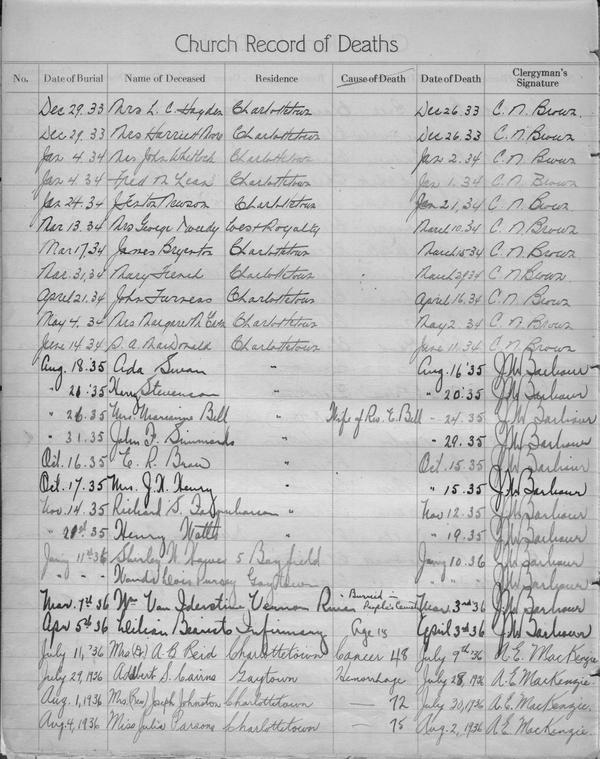 Church Record of Deaths
No. Date of Burial Name of Deceased Residence Cause of Death Date of Death Clergyman's Signature
Dec 29. 33 Mrs L. C. Hayden Charlottetown Dec 26. 33 C. N. Brown.
Dec 29. 33 Mrs Harriett Charlottetown Dec 26. 33 C. N. Brown
Jan 4. 34 Mrs John Whitlock Charlottetown Jan 2. 34 C. N. Brown
Jan 4. 34 Fred Charlottetown Jan 1. 34 C. N. Brown
Jan 24. 34 Newson Charlottetown Jan 21, 34 C. N. Brown
Mar 13. 34 Mrs George Tweedy West Royalty March 10. 34 C. N. Brown
Mar 17. 34 James Bryenton Charlottetown March 15. 34 C. N. Brown
Mar. 31, 34 Mary French Charlottetown March 34 C. N. Brown
April 21. 34 John Furness Charlottetown April 16. 34 C. N. Brown
May 4. 34 Mrs Margaret Charlottetown May 2. 34 C. N. Brown
June 14 34 A. MacDonald Charlottetown June 11. 34 C. N. Brown
Aug. 18. '35 Ada Swan " Aug. 16 '35 J W Barbour
" '35 Harry Stevenson " " 20 '35 J W Barbour
" 26 '35 Mrs. Bell " Wife of Rev. E. Bell " 24. 35 J W Barbour
" 31. 35 John F. Simmonds " " 29. 35 J W Barbour
Oct. 16. 35 E. R. Brow " Oct. 15. 35 J W Barbour
Oct. 17. 35 Mrs. J. H. Henry " " 15. 35 J W Barbour
Nov. 14. 35 Richard S. Farquharson " Nov 12. 35 J W Barbour
" 35 Henry Watts " " 19. 35 J W Barbour
11th 36 Shirley 5 Bayfield 10. 36 J W Barbour
" " " " " J W Barbour
Mar. 7th 36 Wm Van Iderstine Vernon River Buried in People's Cemet Mar. 3rd 36 J W Barbour
Apr 5th 36 Infirmary Age 13 April 3rd 36 J W Barbour
July 11, '36 Mrs (Dr) A. B Reid Charlottetown Cancer 48 July 9th '36 A. E. MacKenzie
July 29, 1936 Cairns Hemorrhage July 28, 1936 A. E. MacKenzie.
Aug. 1, 1936 Mrs. (Rev) Joseph Johnston Charlottetown — 72 July 30, 1936 A. E. MacKenzie.
Aug. 4, 1936 Miss Julia Parsons Charlottetown — 75 Aug. 2, 1936 A E. MacKenzie.